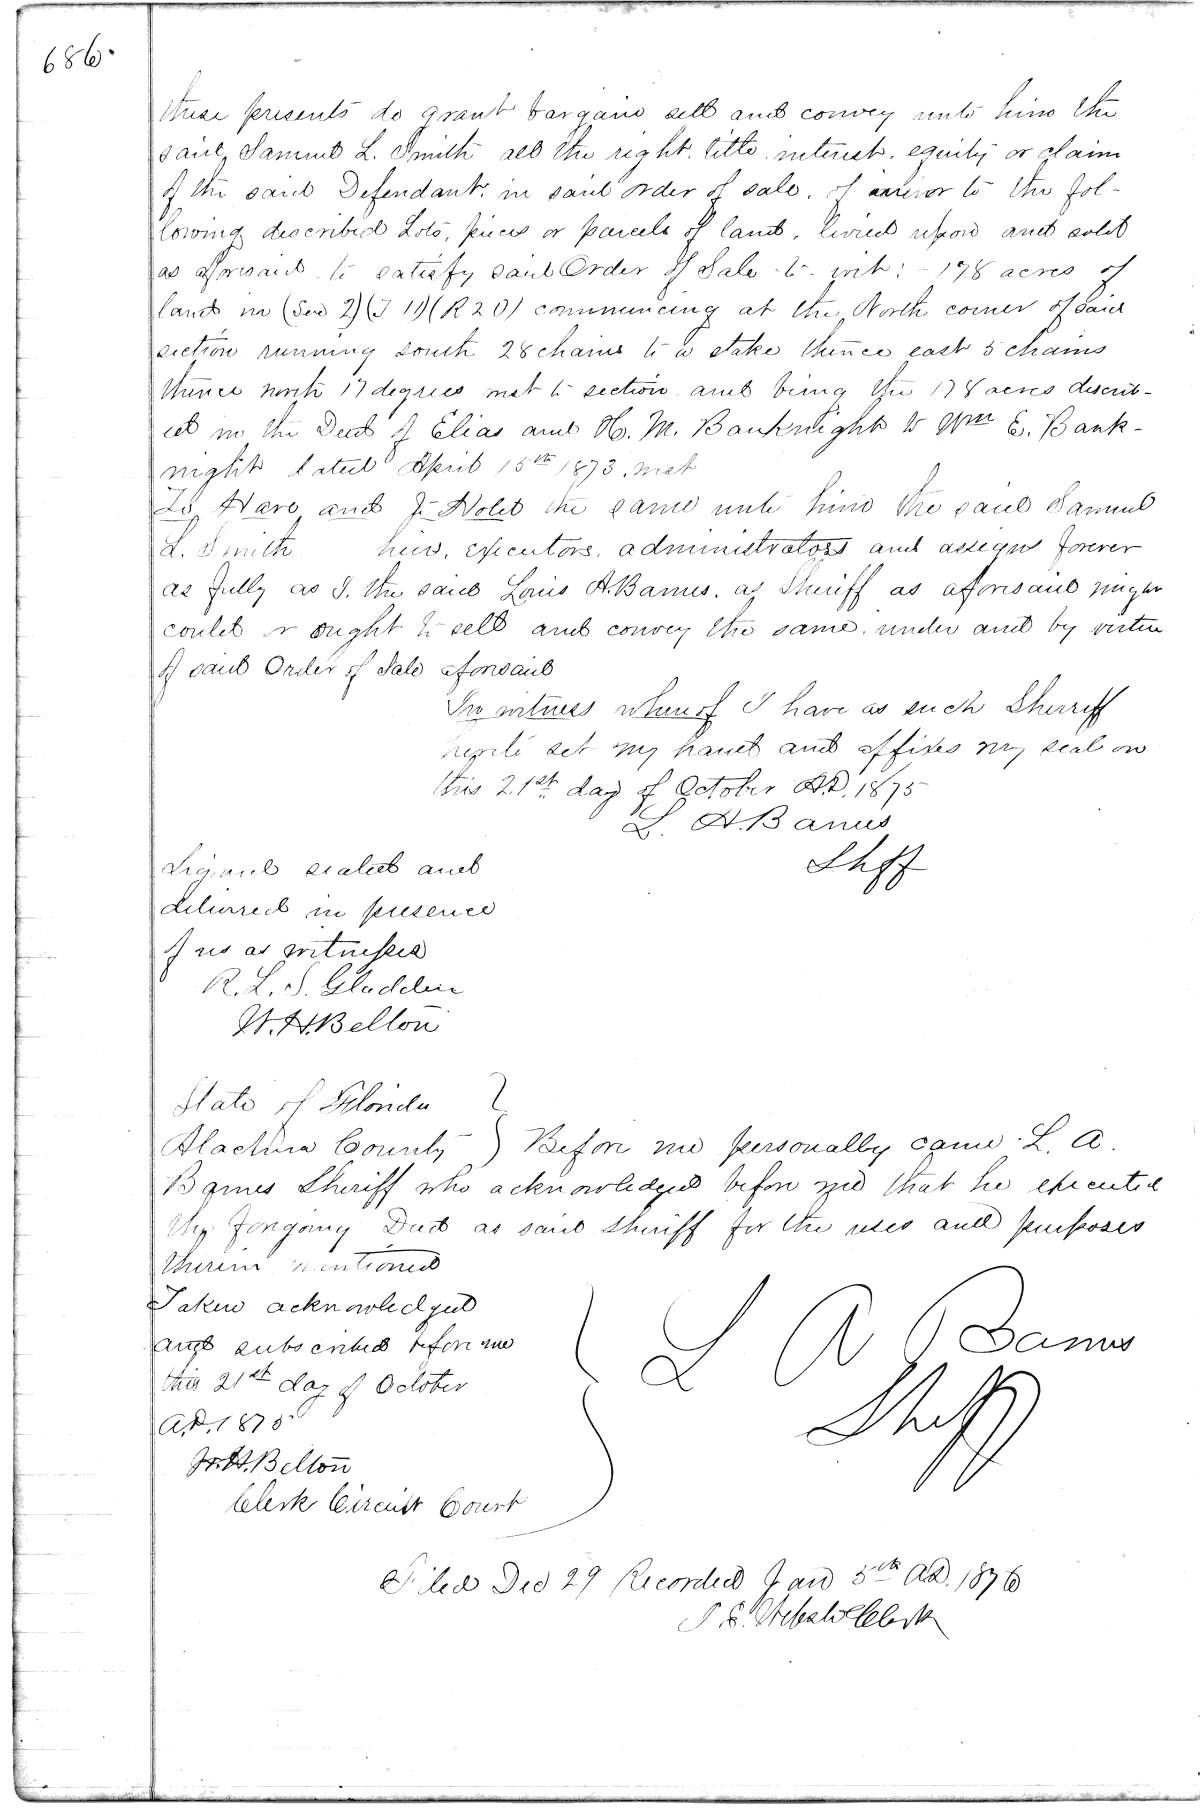 686.
these presents do grant bargain sell and convey unto him the
said Samuel L. Smith all the right, title, interest, equity or claim
of the said Defendant, in said order of sale, of in or to the fol-
lowing described Lots, pieces or parcels of land, levied upon and sold
as aforesaid, to satisfy said Order of Sale to-wit: - 178 acres of
land in (Sec 2) (T 11) (R 20) commencing at the North corner of said
section running south 28 chains to a stake thence east 5 chains
thence north 17 degrees west to section and being the 178 acres describ-
ed in the Deed of Elias and H. M. Banknight to Wm E. Bank-
night dated April 15th 1873.
To Have and To Hold the same unto him the said Samuel
L. Smith heirs, executors, administrators and assigns forever
as fully as I, the said Louis A. Barnes, as Sheriff as aforesaid might
could or ought to sell and convey the same, under and by virtue
of said Order of Sale aforesaid
In witness whereof I have as such Sherriff
hereto set my hand and affixed my seal on
this 21st day of October A.D. 1875
L. A. Barnes
Shff
Signed sealed and
delivered in presence
of us as witnesses
R. L. S. Gladden
W. H. Belton
State of Florida
Alachua County } Before me personally came L. A.
Barnes Sheriff who acknowledged before me that he executed
the foregoing Deed as said sheriff for the uses and purposes
therein mentioned
Taken acknowledged
and subscribed before me
this 21st day of October
A.D. 1875
W. H. Belton
Clerk Circuit Court
L A Barnes
Shff
Filed Dec 29 Recorded Jan 5th A.D. 1876
Clerk